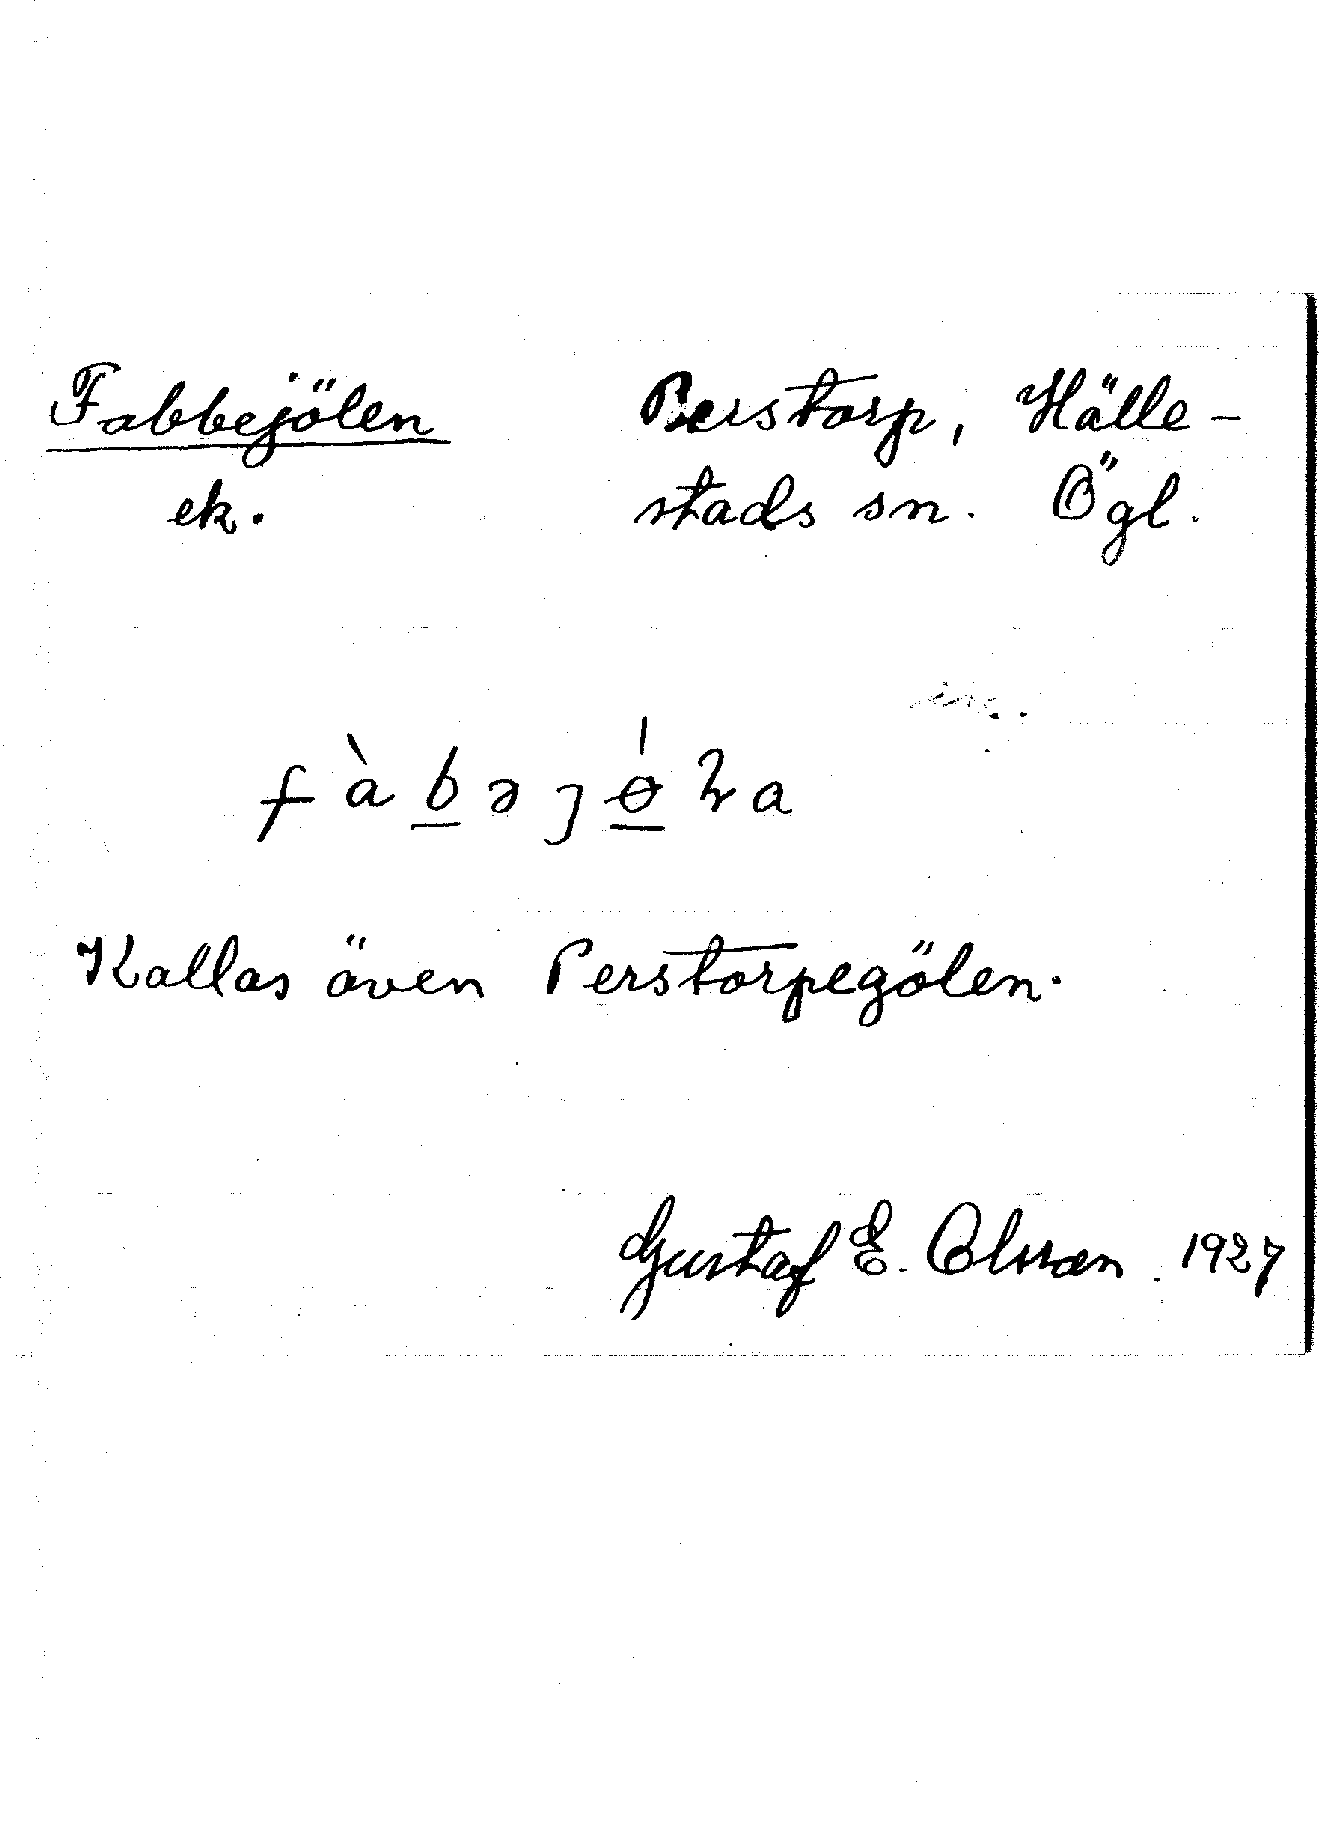 Fabbejölen Perstorp, Hälle-
ek. stads sn. Ögl.
fàbəȷǿլa
Kallas även Perstorpegölen.
Gustaf E. Olsson 1927